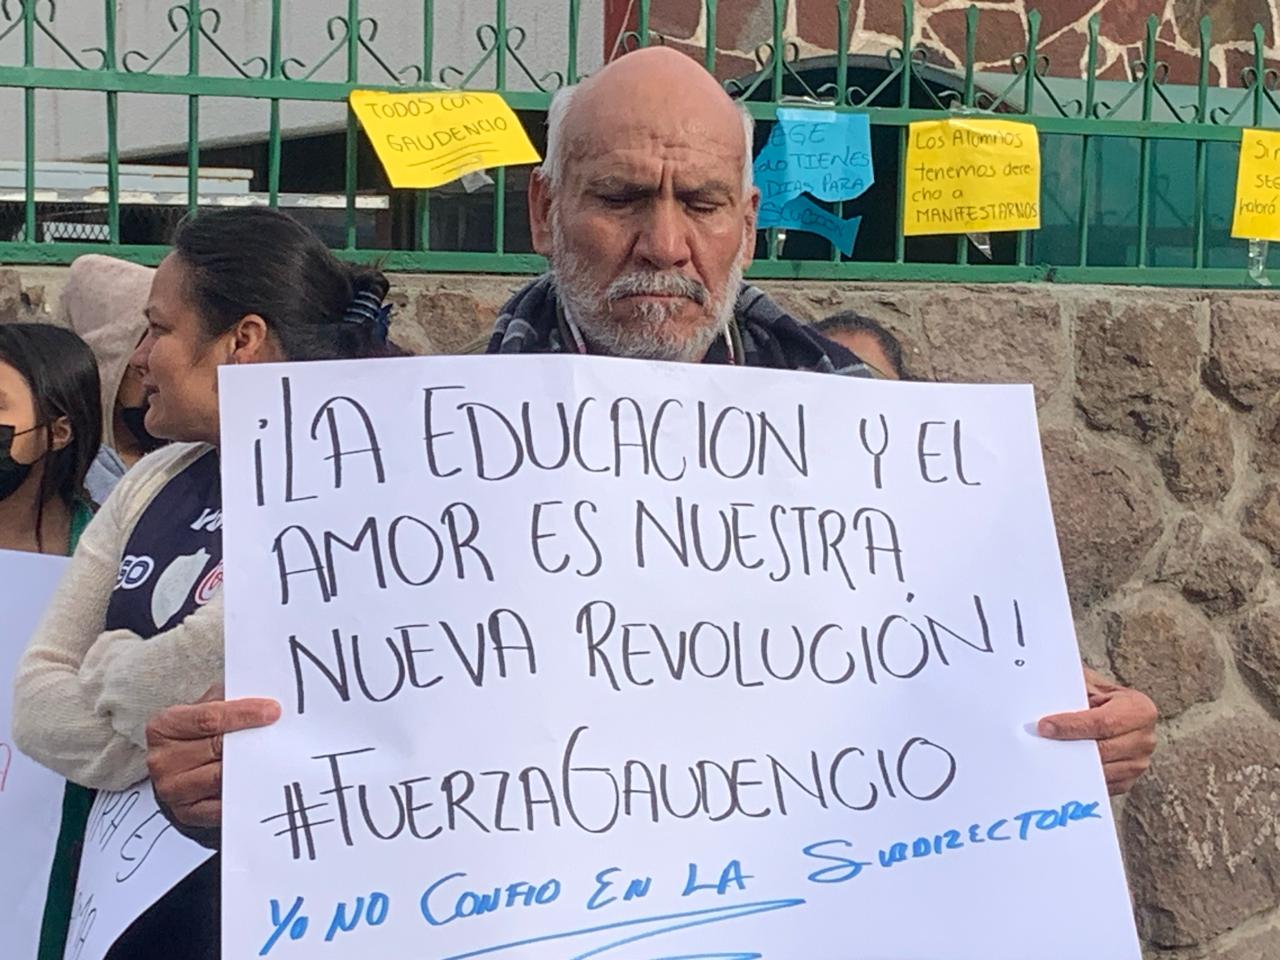 TODOS CON
GAUDENCIO
TIENES
DIAS PARA
Los Alumnos
tenemos dere-
cho a
MANIFESTARNOS
¡LA EDUCACION Y EL
AMOR ES NUESTRA
NUEVA REVOLUCIÓN!
#FUERZAGAUDENCIO
YO NO CONFIO EN LA SUBDIRECTORA